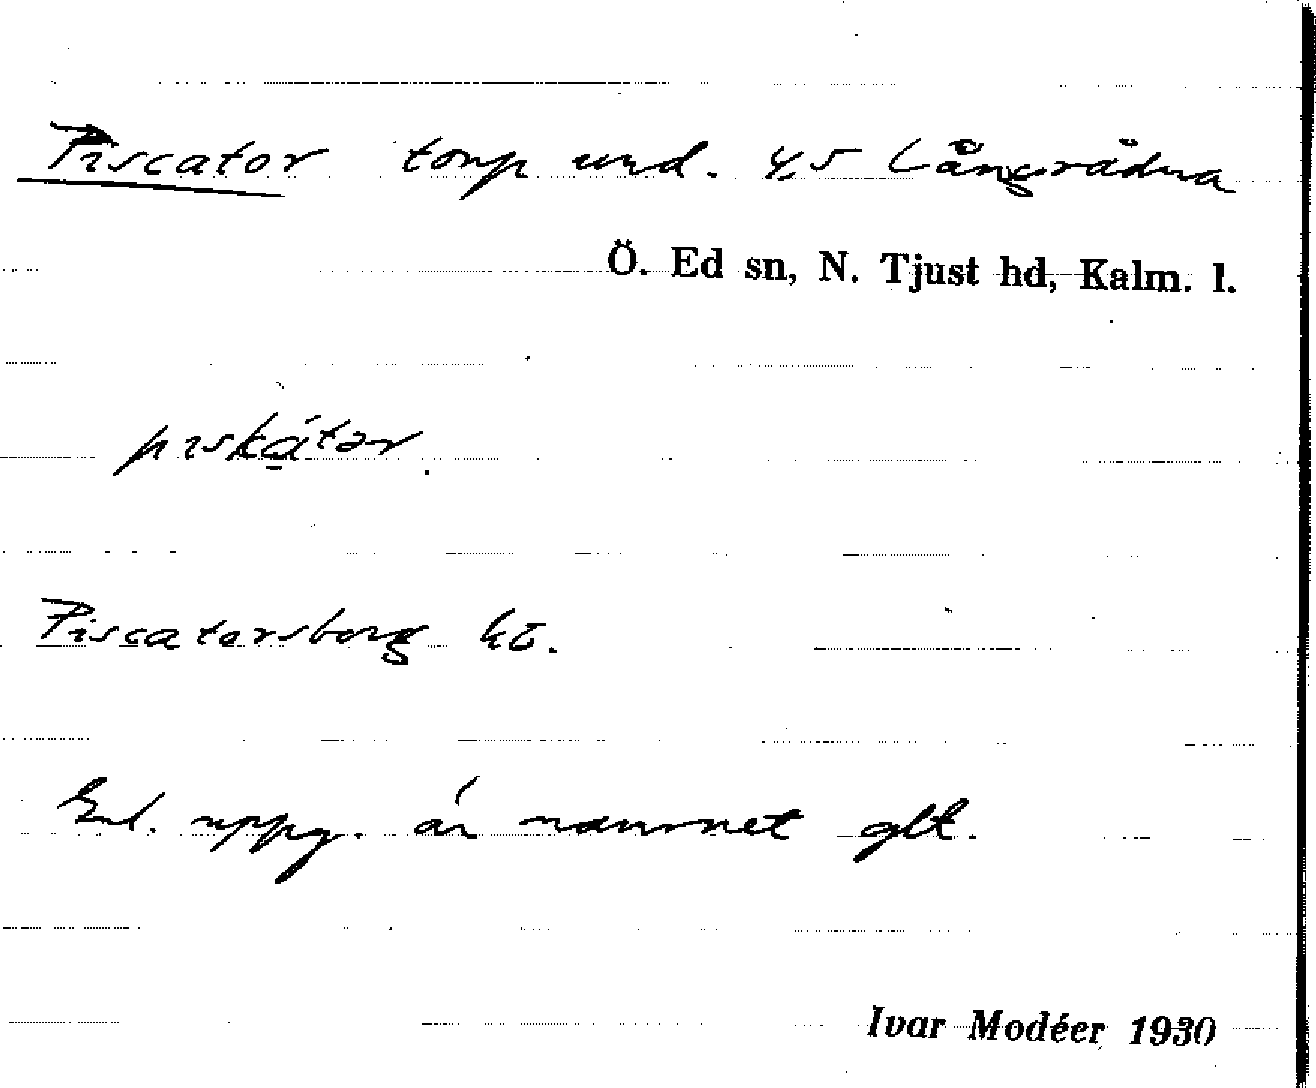 Piscator torp und. 4,5 Långrådna
Ö. Ed sn, N. Tjust hd, Kalm. l.
piskátər.
Piscatorsborg kt.
Enl. uppg. är namnet glt.
Ivar Modéer 1930